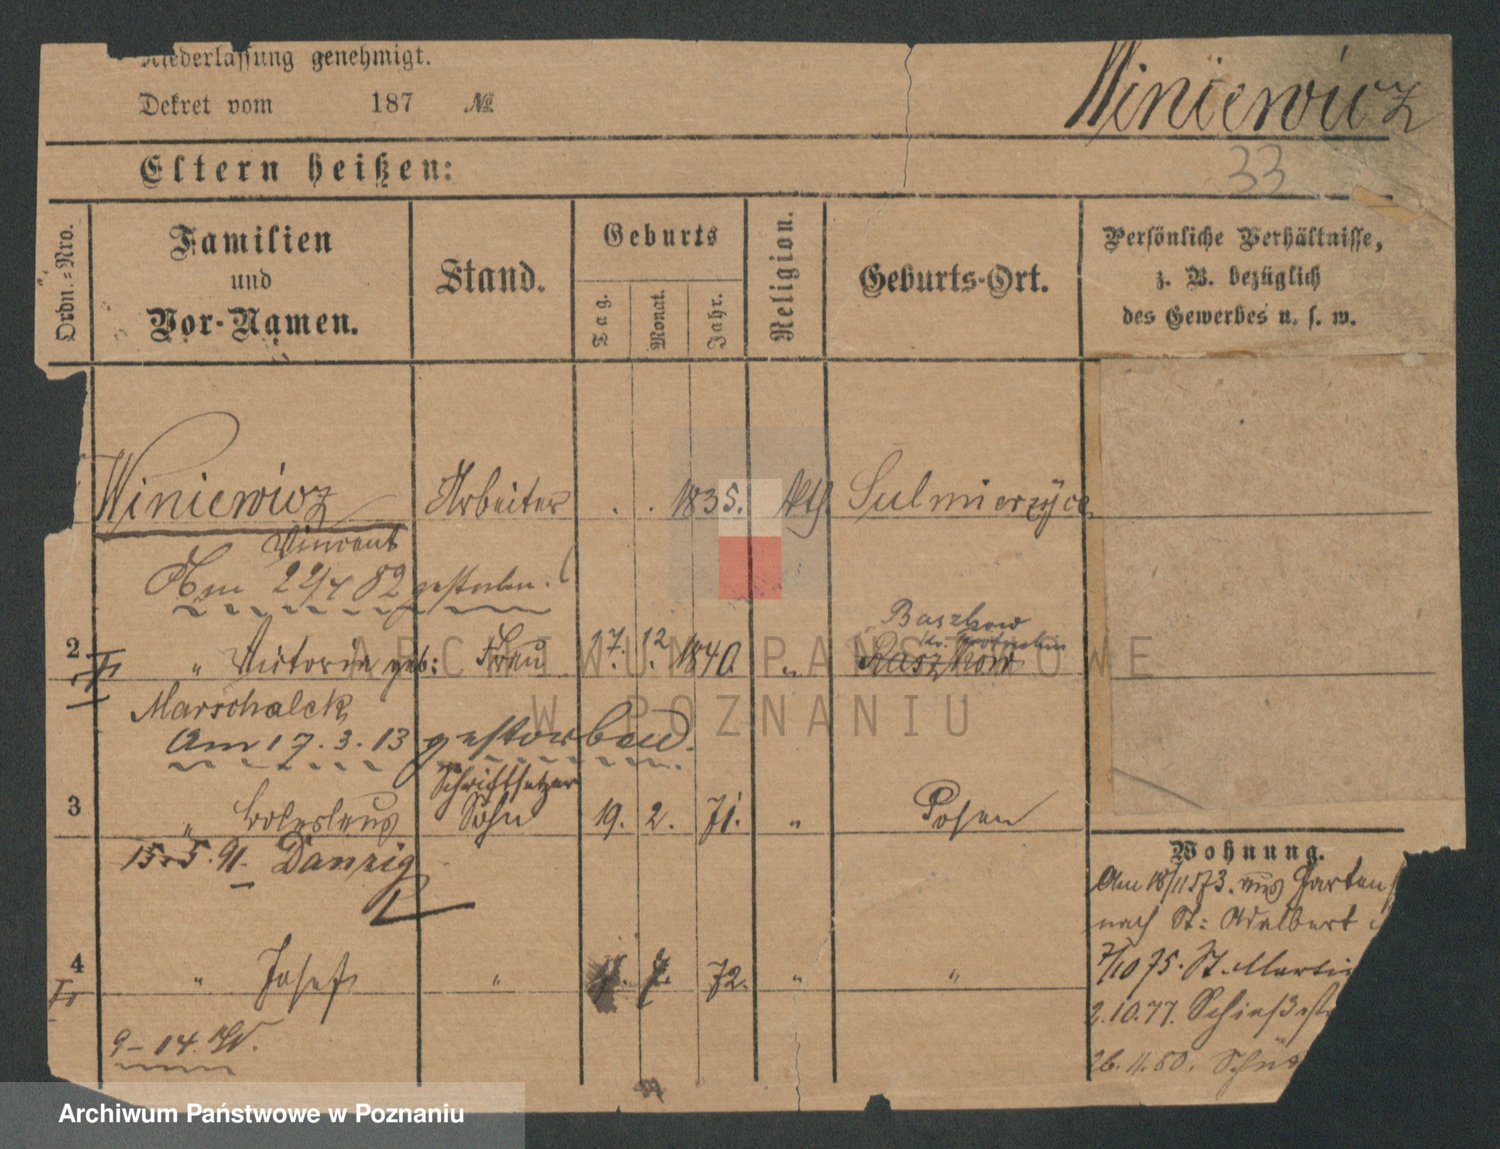 Niederlassung genehmigt.
Dekret vom 187 №
Winiewicz
33
Eltern heißen:
Ordn.-Nro.
Familien
und
Vor-Namen.
Stand.
Geburts
Tag.
Monat.
Jahr.
Religion.
Geburts-Ort.
Persönliche Verhältnisse,
z. B. bezüglich
des Gewerbes u. s. w.
Winiewicz Arbeiter . . 1835. kth. Sulmierzyce
Vincent
Am 22/4 82 gestorben.
Baszkow
2 " Victoria geb: Frau 17. 12. 1840 " Raszkow
Marschalek
Am 17.3.13 gestorben.
Schriftsetzer
3 " Boleslaus Sohn 19. 2. 71. " Posen
15.5.91. Danzig
4 " Josef " 7. 72. " "
9-14.
Wohnung.
Am 18/11 73. aus Garten
nach St: Adalbert
7/10 75. St. Martin
2.10.77. Schießstr
26.11.80. Schüt
ARCHIWUM PAŃSTWOWE
W POZNANIU
Archiwum Państwowe w Poznaniu